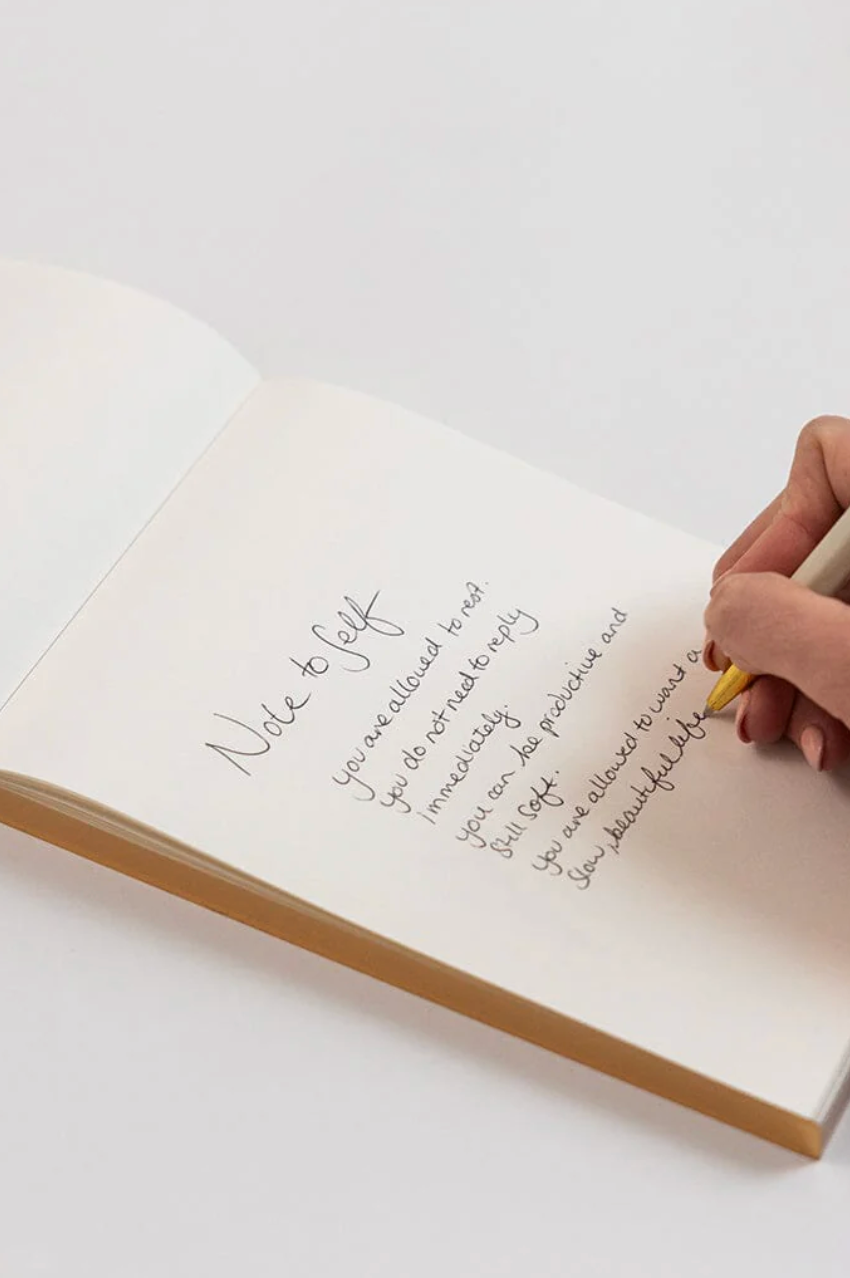 Note to Self
you are allowed to rest.
you do not need to reply
immediately.
you can be productive and
still soft.
you are allowed to want a
slow, beautiful life